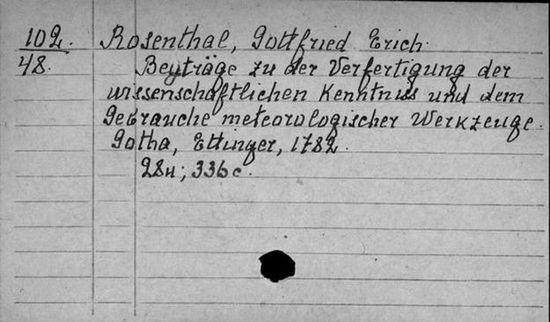 102. Rosenthal, Gottfried Erich.
48. Beyträge zu der Verfertigung der
wissenschaftlichen Kenntniss und dem
Gebrauche meteorologischer Werkzeuge.
Gotha, Ettinger, 1782.
28н; 336с.